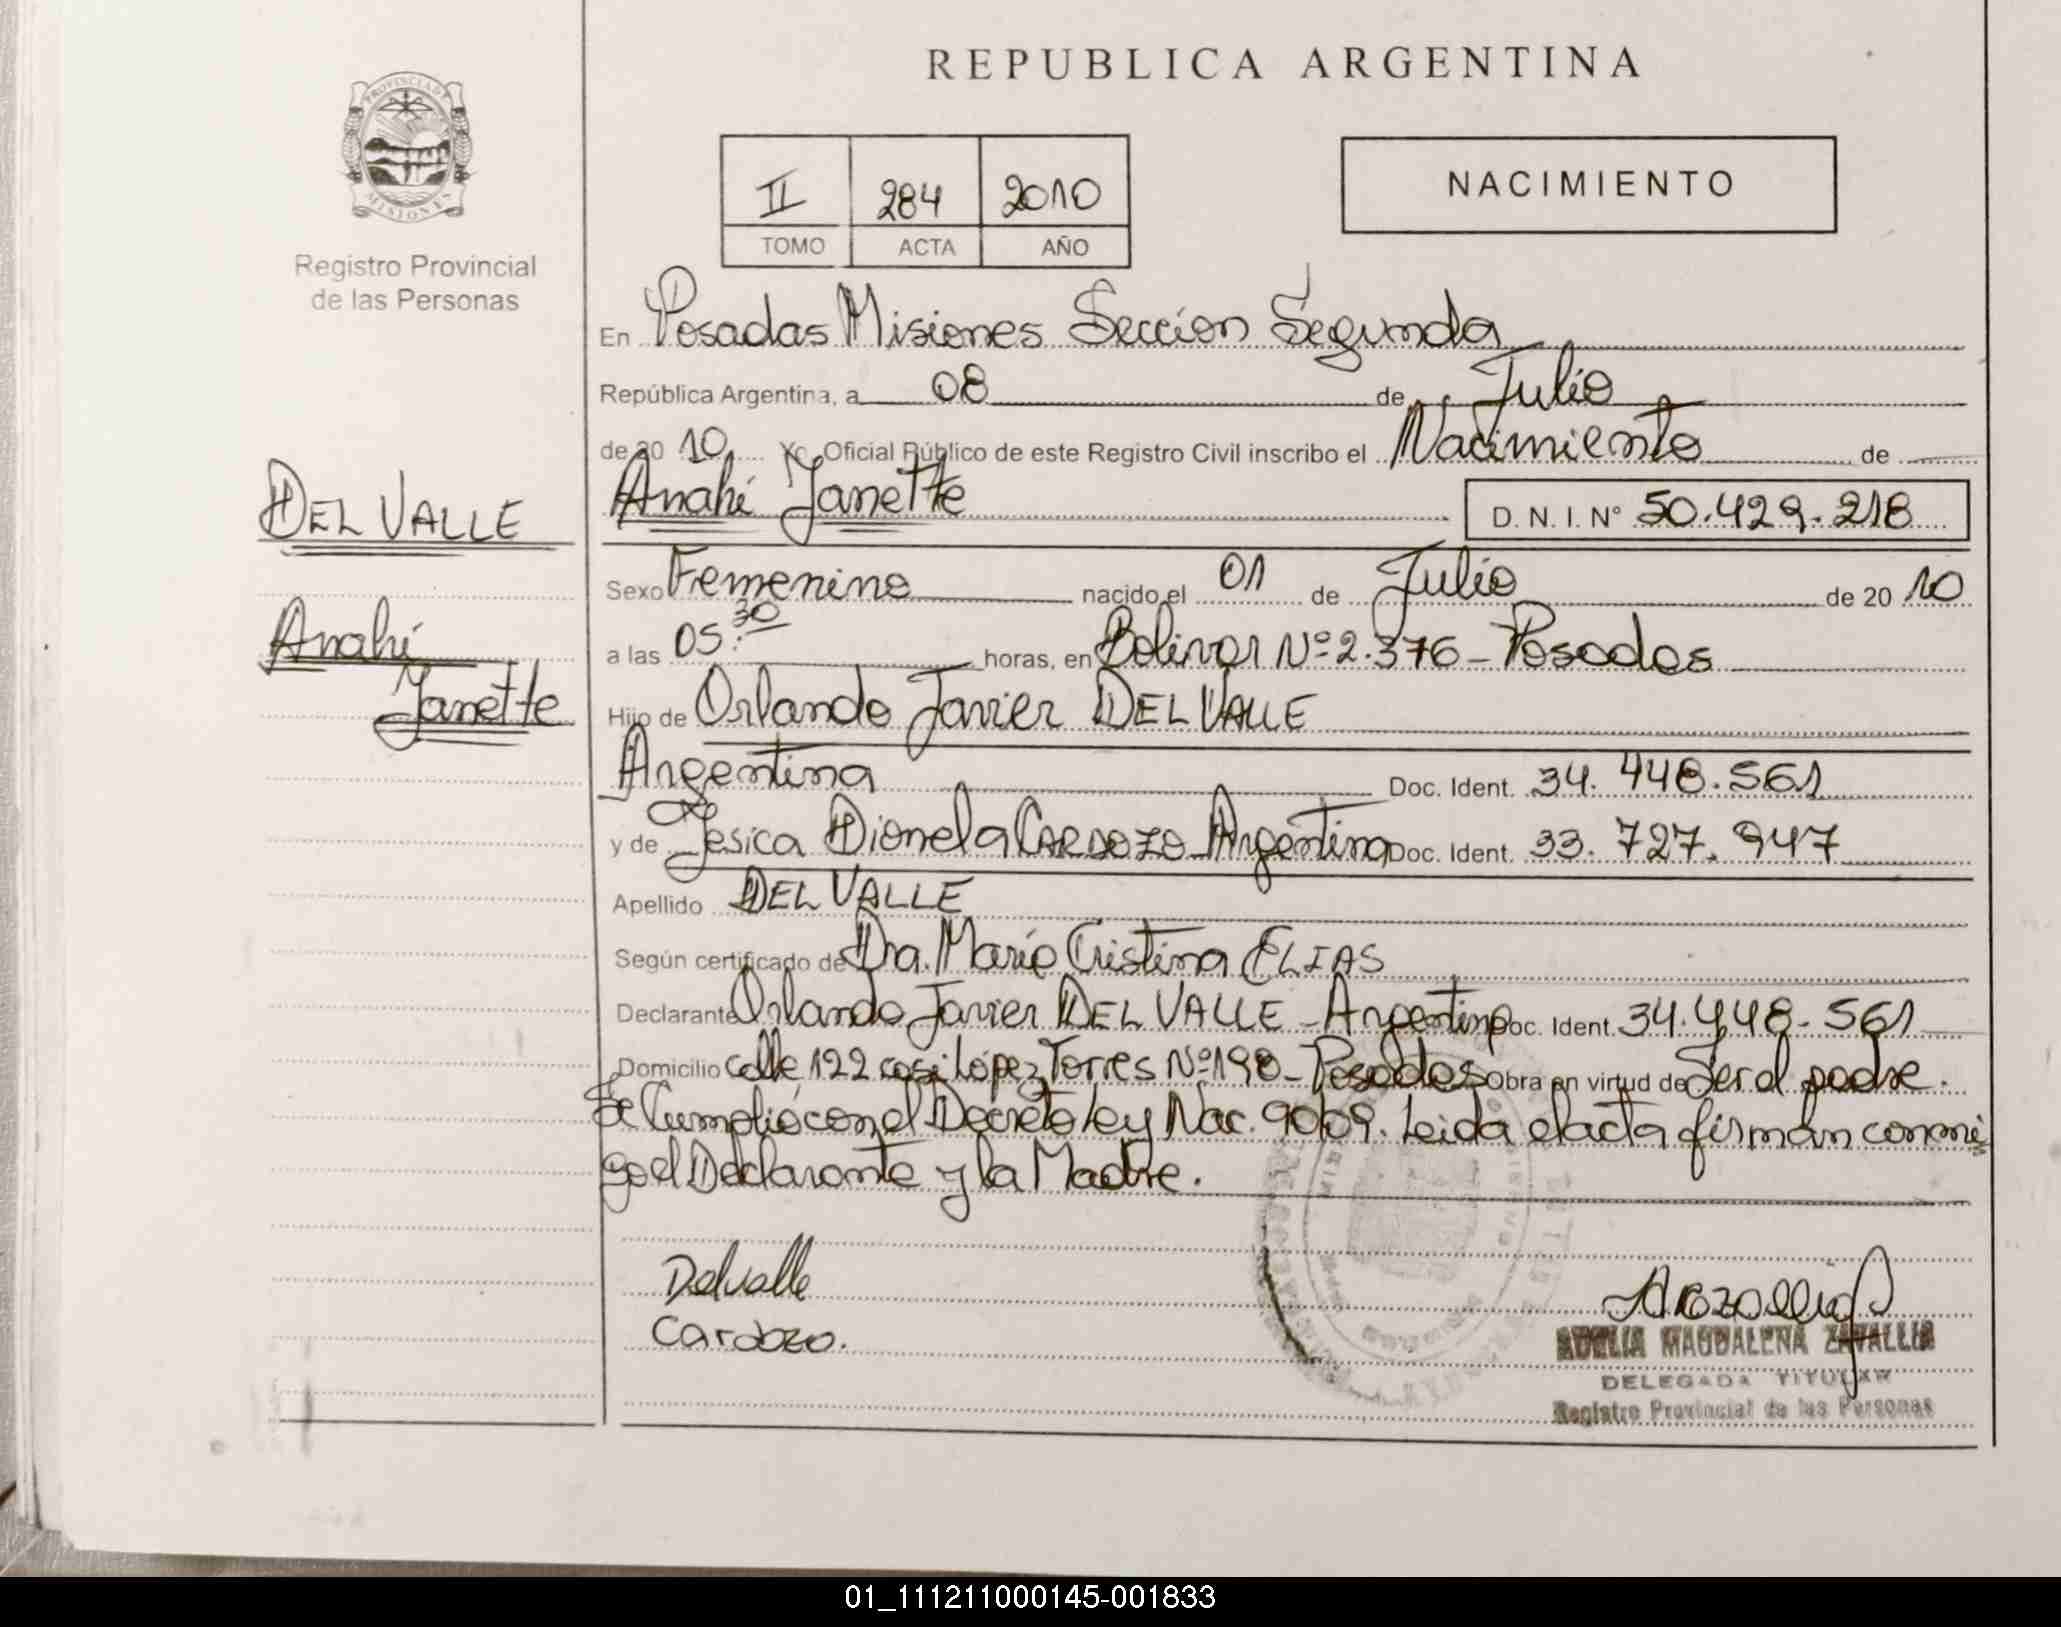 REPUBLICA ARGENTINA
PROVINCIA DE MISIONES
Registro Provincial
de las Personas
II 284 2010
TOMO ACTA AÑO
NACIMIENTO
En Posadas Misiones Sección Segunda
República Argentina, a 08 de Julio
de 20 10 Yo, Oficial Público de este Registro Civil inscribo el Nacimiento de
DEL VALLE
Anahi Janette
Anahí Janette D. N. I. Nº 50.429.218
Sexo Femenino nacido el 01 de Julio de 20 10
a las 05:30 horas, en Bolivar Nº 2.376 - Posadas
Hijo de Orlando Javier DEL VALLE
Argentina Doc. Ident. 34.448.561
y de Jesica Dionela CARDOZO Argentina Doc. Ident. 33.727.947
Apellido DEL VALLE
Según certificado de Dra. María Cristina ELIAS
Declarante Orlando Javier DEL VALLE - Argentino Doc. Ident. 34.448.561
Domicilio calle 122 casi López Torres Nº 190 - Posadas Obra en virtud de Ser el padre.
Se Cumplió con el Decreto Ley Nac. 9009. Leida el acta firman conmi
go el Declarante y la Madre.
Delvalle
Cardozo.
ADELIA MAGDALENA ZAVALLIA
DELEGADA TITULAR
Registro Provincial de las Personas
01_111211000145-001833